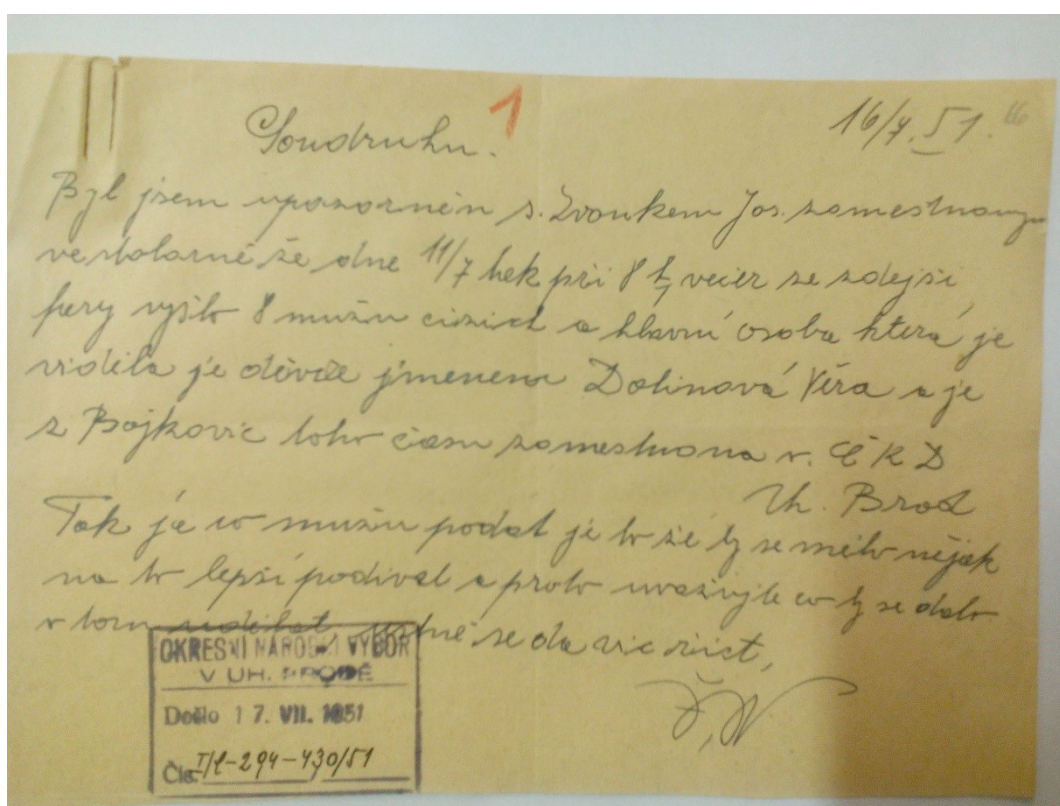 1
16/7. 51. 16
Soudruhu.
Byl jsem upozorněn s. Zvonkem Jos. zamestnanym
ve stolarně že dne 11/7 při 8 h večer se zdejši
vyšlo 8 mužu cizich a hlavní osoba která je
viděla je děvče jmenem Dolinová Věra a je
z Bojkovic toho času zamestnana v. ČKD
Uh. Brod
Tak ja co mužu podat je to že by se mělo nějak
na to lepší podivat a proto uvažujte co by se dalo
v tom udělat ustně se da vic řict,
OKRESNÍ NÁRODNÍ VÝBOR
V UH. BRODĚ
Došlo 17. VII. 1951
Čís. I/1-294-430/51